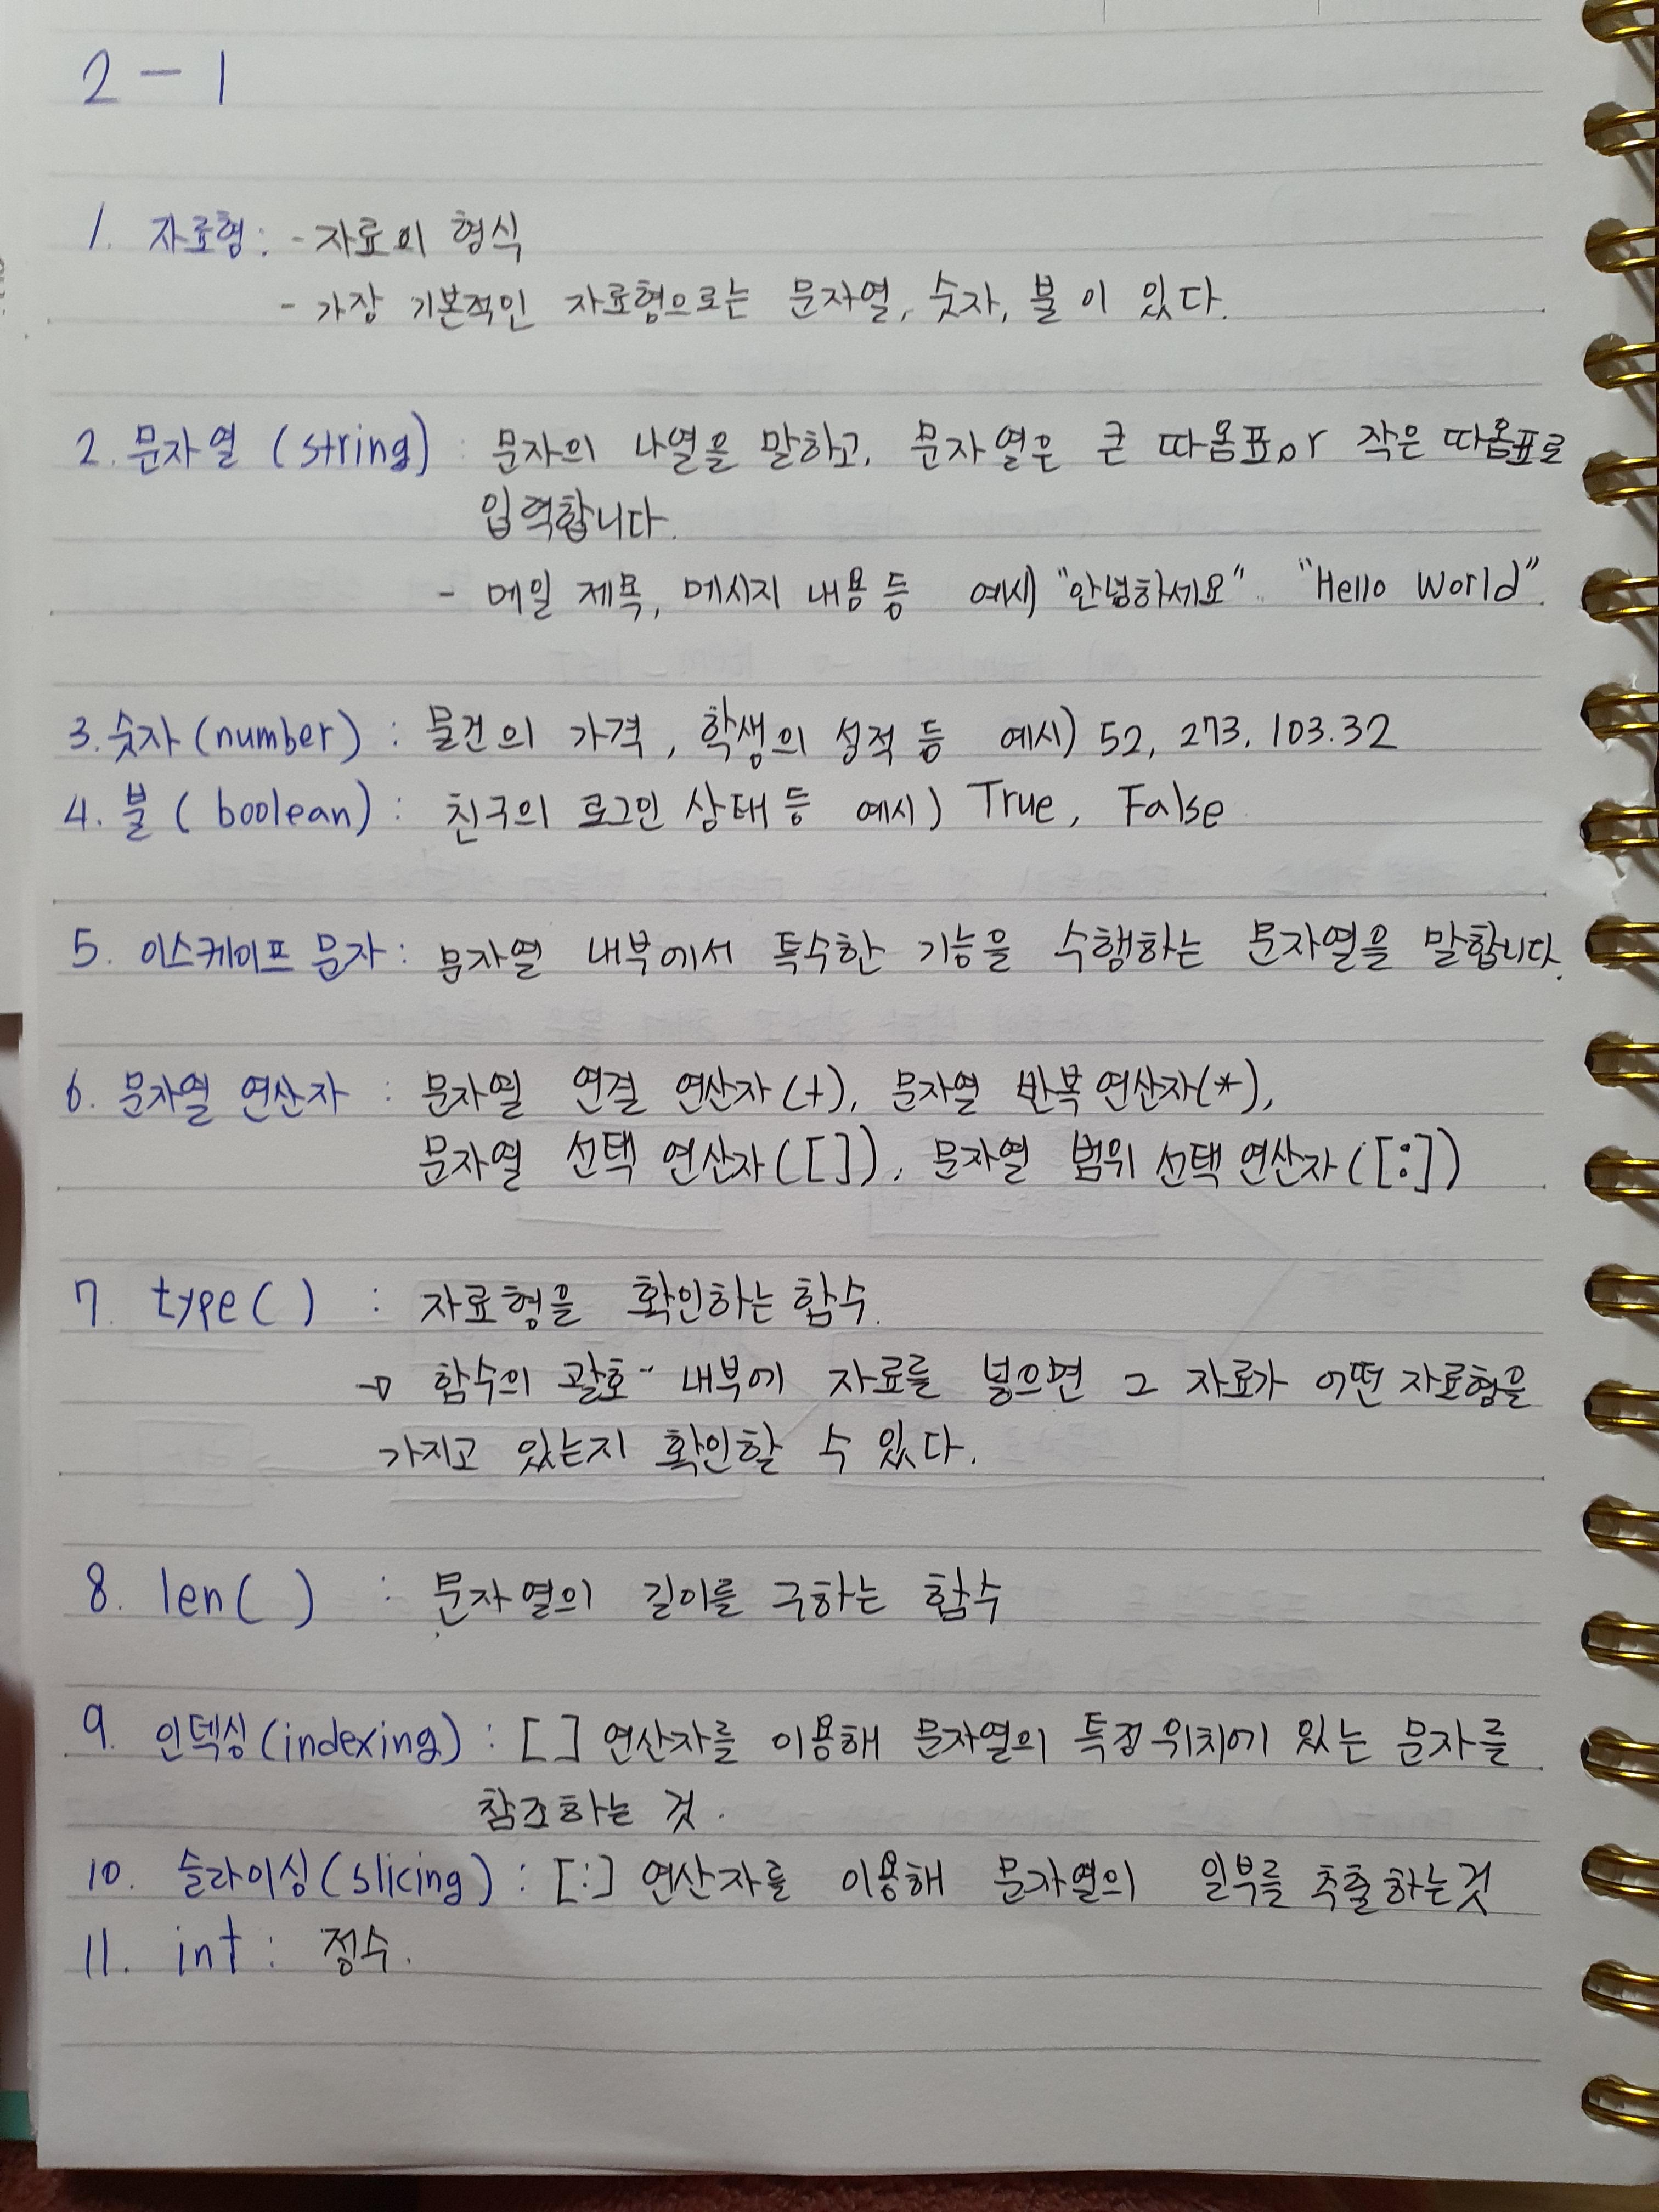 2 - 1
1. 자료형 : - 자료의 형식
- 가장 기본적인 자료형으로는 문자열, 숫자, 불이 있다.
2. 문자열 (string) : 문자의 나열을 말하고, 문자열은 큰 따옴표or 작은 따옴표로
입력합니다.
- 메일 제목, 메시지 내용 등 예시) "안녕하세요" "Hello World"
3. 숫자 (number) : 물건의 가격, 학생의 성적 등 예시) 52, 273, 103.32
4. 불 ( boolean) : 친구의 로그인 상태 등 예시) True, False
5. 이스케이프 문자 : 문자열 내부에서 특수한 기능을 수행하는 문자열을 말합니다.
6. 문자열 연산자 : 문자열 연결 연산자(+), 문자열 반복 연산자(*),
문자열 선택 연산자([]), 문자열 범위 선택 연산자([:])
7. type( ) : 자료형을 확인하는 함수.
→ 함수의 괄호 내부에 자료를 넣으면 그 자료가 어떤 자료형을
가지고 있는지 확인할 수 있다.
8. len( ) : 문자열의 길이를 구하는 함수
9. 인덱싱(indexing) : [ ] 연산자를 이용해 문자열의 특정 위치에 있는 문자를
참조하는 것.
10. 슬라이싱(slicing) : [:] 연산자를 이용해 문자열의 일부를 추출하는 것
11. int : 정수.